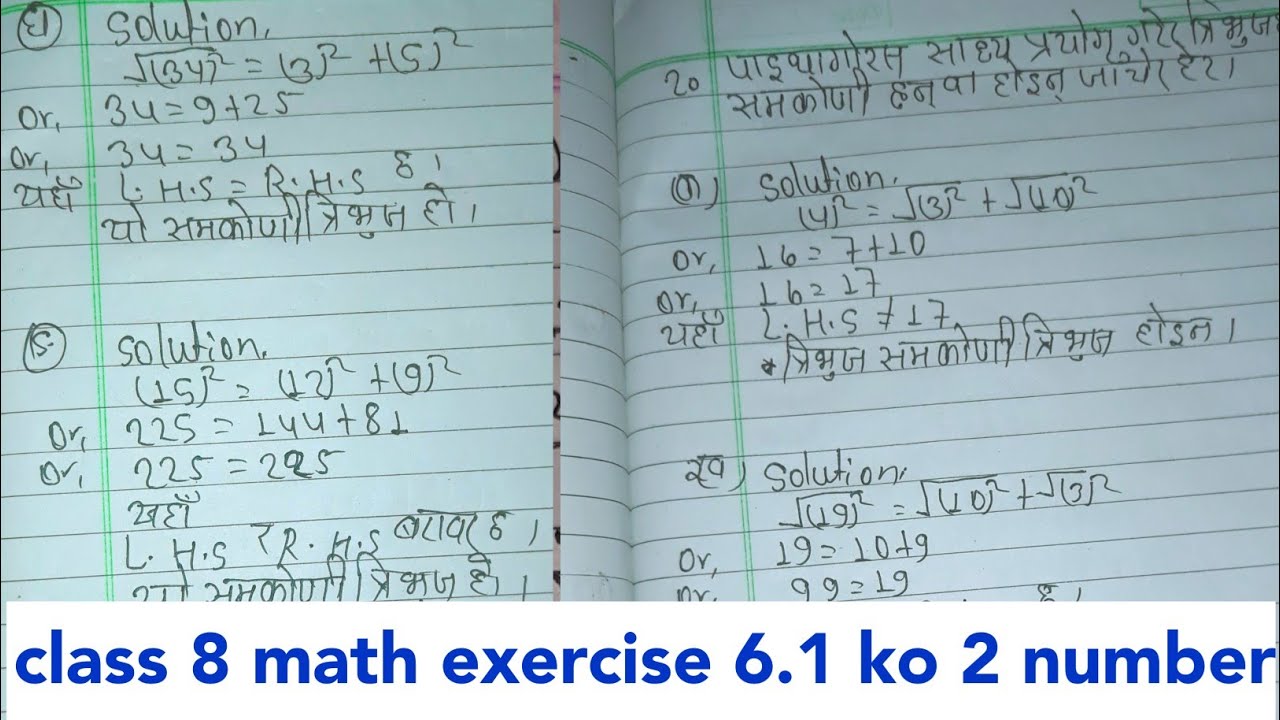 घ) Solution,
√(34)² = (3)² + (5)²
Or, 34 = 9 + 25
Or, 34 = 34
यहाँ L.H.S = R.H.S छ।
यो समकोणी त्रिभुज हो।
ङ) Solution,
(15)² = (12)² + (9)²
Or, 225 = 144 + 81
Or, 225 = 225
यहाँ
L.H.S र R.H.S बरावर छ।
यो समकोणी त्रिभुज हो।
२० पाइथागोरस साध्य प्रयोग गरेर त्रिभुज
समकोणी हुन् वा होइन् जाँचेर हेर।
क) Solution,
(4)² = √(3)² + √(10)²
Or, 16 = 7 + 10
Or, 16 = 17
यहाँ L.H.S ≠ 17
त्रिभुज समकोणी त्रिभुज होइन।
ख) Solution,
√(19)² = √(10)² + √(3)²
Or, 19 = 10 + 9
Or, 99 = 19
छ।
class 8 math exercise 6.1 ko 2 number